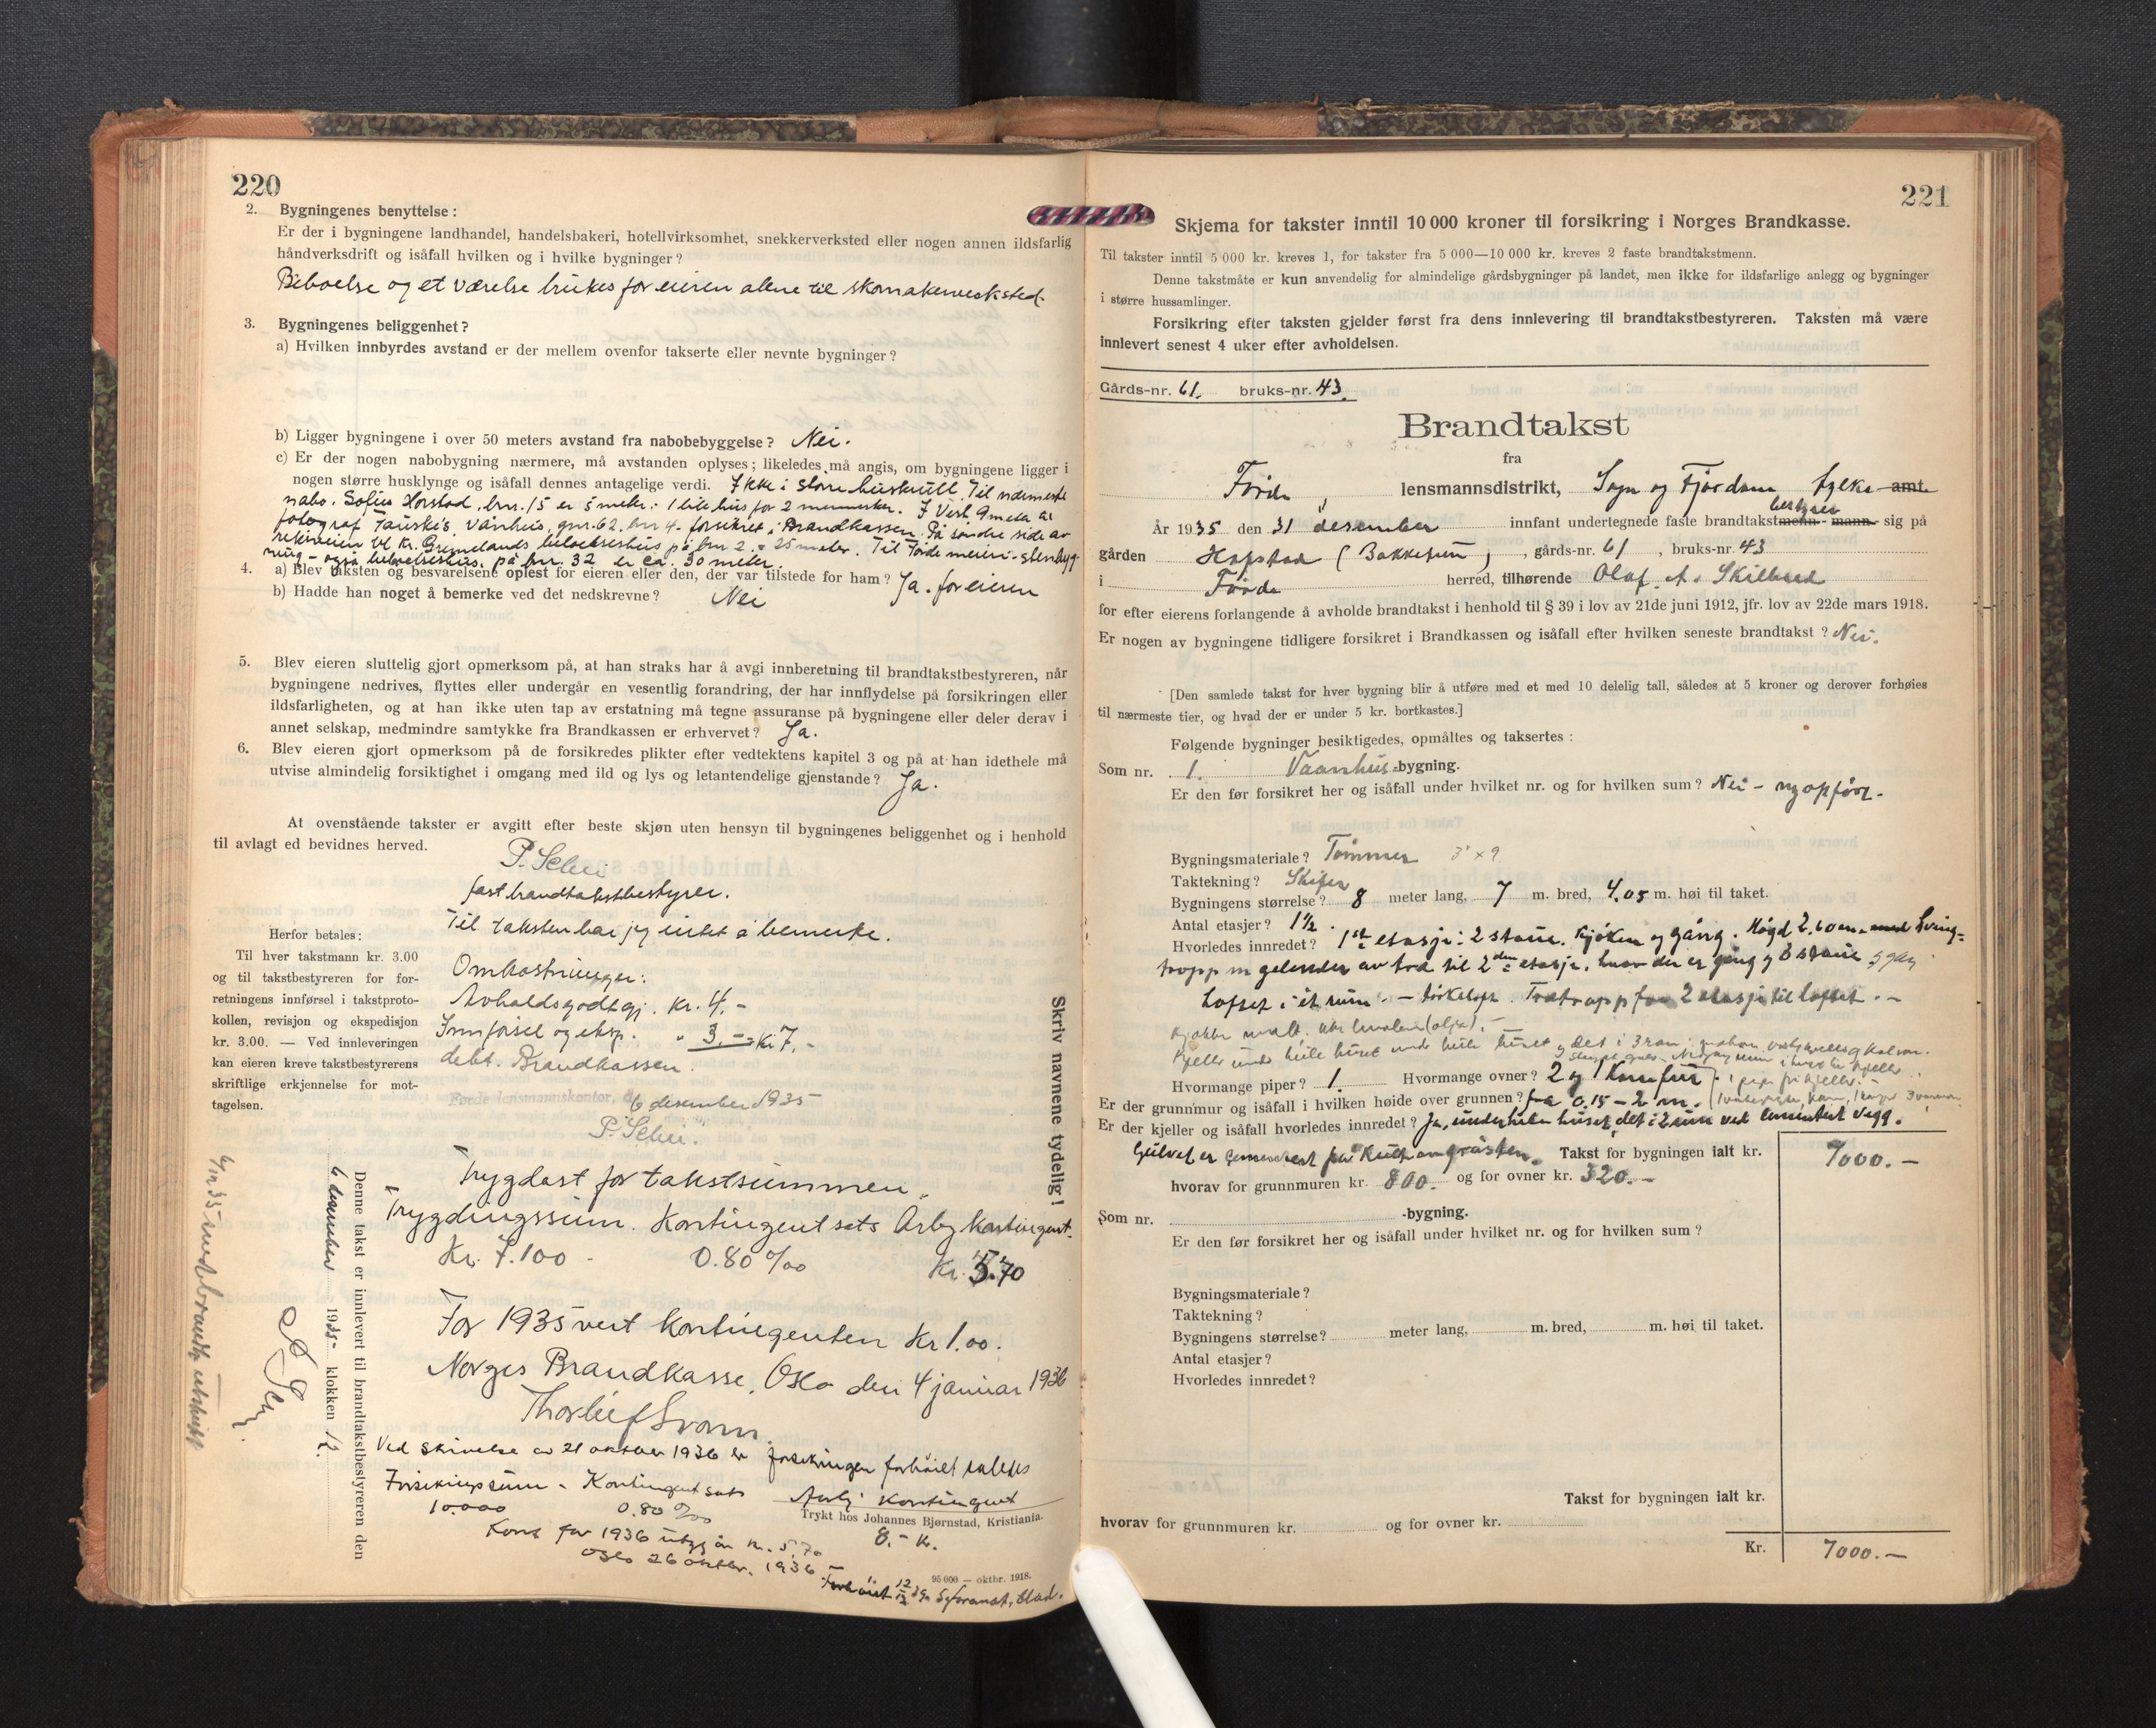 220
2. Bygningenes benyttelse:
Er der i bygningene landhandel, handelsbakeri, hotellvirksomhet, snekkerverksted eller nogen annen ildsfarlig
håndverksdrift og isåfall hvilken og i hvilke bygninger?
Beboelse og et værelse brukes for eieren alene til skomakerverksted.
3. Bygningenes beliggenhet?
a) Hvilken innbyrdes avstand er der mellem ovenfor takserte eller nevnte bygninger?
b) Ligger bygningene i over 50 meters avstand fra nabobebyggelse? Nei.
c) Er der nogen nabobygning nærmere, må avstanden oplyses; likeledes må angis, om bygningene ligger i
nogen større husklynge og isåfall dennes antagelige verdi. Ikke i større Til nærmeste
nabo, Sofus bnr. 15 er 5 meter: 1 lite hus for 2 mennesker. I Vest 9 meter til
fotograf vånhus, gnr. 62, bnr 4. forsikret i Brandkassen. På søndre side av
til Kr. Grimelands beboelseshus på bnr 2. = 25 meter. Til Førde meieri - stenbyg-
ning - også beboelseshus, på bnr. 32 er ca. 30 meter.
4. a) Blev taksten og besvarelsene oplest for eieren eller den, der var tilstede for ham? Ja. for eieren
b) Hadde han noget å bemerke ved det nedskrevne? Nei
5. Blev eieren sluttelig gjort opmerksom på, at han straks har å avgi innberetning til brandtakstbestyreren, når
bygningene nedrives, flyttes eller undergår en vesentlig forandring, der har innflydelse på forsikringen eller
ildsfarligheten, og at han ikke uten tap av erstatning må tegne assuranse på bygningene eller deler derav i
annet selskap, medmindre samtykke fra Brandkassen er erhvervet? Ja.
6. Blev eieren gjort opmerksom på de forsikredes plikter efter vedtektens kapitel 3 og på at han idethele må
utvise almindelig forsiktighet i omgang med ild og lys og letantendelige gjenstande? Ja.
At ovenstående takster er avgitt efter beste skjøn uten hensyn til bygningenes beliggenhet og i henhold
til avlagt ed bevidnes herved.
fast brandtakstbestyrer.
Til taksten har jeg intet å bemerke.
Herfor betales:
Til hver takstmann kr. 3.00
og til takstbestyreren for for-
retningens innførsel i takstproto-
kollen, revisjon og ekspedisjon
kr. 3.00. — Ved innleveringen
kan eieren kreve takstbestyrerens
skriftlige erkjennelse for mot-
tagelsen.
Omkostninger:
Avholdsgodtgj. Kr. 4,-
Innførsel og eksp. " 3,- = Kr 7,-
debt. Brandkassen.
Førde lensmannskontor, 6 desember 1935
Skriv navnene tydelig!
Denne takst er innlevert til brandtakstbestyreren den
6 desember 1935 klokken 12.
Trygdast for takstsummen.
Trygdingssum. Kontingentsats Årleg kontingent.
Kr. 7.100 - 0.80 ‰ Kr. 5.70
For 1935 vert kontingenten Kr 1.00.
Norges Brandkasse, Oslo den 4 januar 1936
Ved skrivelse av 21 oktober 1936 er forsikringen forhöiet således
Forsikringssum - Kontingentsats Aarlig kontingent
10.000 0.80 ‰ 8.- Kr.
Trykt hos Johannes Bjørnstad, Kristiania.
Kont for 1936 utgjør kr. 5.70
Oslo 26 oktbr. 1936
95 000 — oktbr. 1918.
221
Skjema for takster inntil 10 000 kroner til forsikring i Norges Brandkasse.
Til takster inntil 5 000 kr. kreves 1, for takster fra 5 000—10 000 kr. kreves 2 faste brandtakstmenn.
Denne takstmåte er kun anvendelig for almindelige gårdsbygninger på landet, men ikke for ildsfarlige anlegg og bygninger
i større hussamlinger.
Forsikring efter taksten gjelder først fra dens innlevering til brandtakstbestyreren. Taksten må være
innlevert senest 4 uker efter avholdelsen.
Gårds-nr. 61. bruks-nr. 43.
Brandtakst
fra
Førde, lensmannsdistrikt, Sogn og Fjordane fylke amt.
bestyrer
År 1935 den 31 desember innfant undertegnede faste brandtakstmenn- mann- sig på
gården Hafstad (Bakketun), gårds-nr. 61, bruks-nr. 43
i Førde herred, tilhørende Olaf A. Skilbred
for efter eierens forlangende å avholde brandtakst i henhold til § 39 i lov av 21de juni 1912, jfr. lov av 22de mars 1918.
Er nogen av bygningene tidligere forsikret i Brandkassen og isåfall efter hvilken seneste brandtakst? Nei.
[Den samlede takst for hver bygning blir å utføre med et med 10 delelig tall, således at 5 kroner og derover forhøies
til nærmeste tier, og hvad der er under 5 kr. bortkastes.]
Følgende bygninger besiktigedes, opmåltes og taksertes:
Som nr. 1. Vaanhus-bygning.
Er den før forsikret her og isåfall under hvilket nr. og for hvilken sum? Nei - ny opför.
Bygningsmateriale? Tömmer 3" x 9
Taktekning? Skifer
Bygningens størrelse? 8 meter lang, 7 m. bred, 4.05 m. høi til taket.
Antal etasjer? 1½.
Hvorledes innredet? 1ste etasje: 2 stauer, kjøken og gang. Høgd 2.60 m. med Sving-
tropp m gelender av tre til 2den etasje, hvor der er gang og 3 stauer
Loftet i et rum. - tørkeloft. Tretropp fra 2 etasje til loftet. -
Kjeller under heile huset
Hvormange piper? 1. Hvormange ovner? 2 og 1 Komfür
Er der grunnmur og isåfall i hvilken høide over grunnen? fra 0.15 - 2 m.
Er der kjeller og isåfall hvorledes innredet? Ja, under hele huset, delt i 2 rum ved cementert vegg.
Gulvet er cementert på Takst for bygningen ialt kr. 7000.-
hvorav for grunnmuren kr. 800.- og for ovner kr. 320.-
Som nr. -bygning.
Er den før forsikret her og isåfall under hvilket nr. og for hvilken sum?
Bygningsmateriale?
Taktekning?
Bygningens størrelse? meter lang, m. bred, m. høi til taket.
Antal etasjer?
Hvorledes innredet?
Takst for bygningen ialt kr.
hvorav for grunnmuren kr. og for ovner kr.
Kr. 7000.-